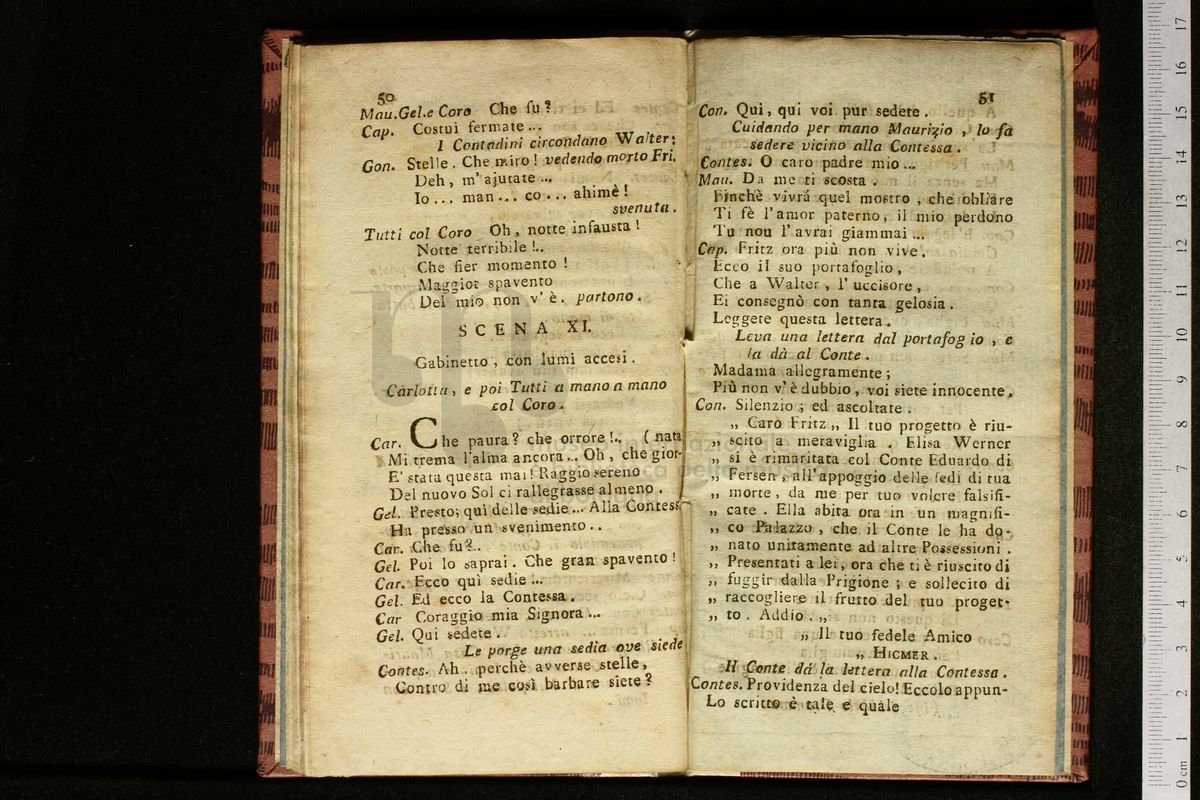 50
Mau.Gel.e Coro Che fu?
Cap. Costui fermate...
I Contadini circondano Walter;
Gon. Stelle. Che miro! vedendo morto Fri.
Deh, m'ajutate...
Io... man... co... ahimè!
svenuta.
Tutti col Coro Oh, notte infausta!
Notte terribile!..
Che fier momento!
Maggior spavento
Del mio non v'è. partono.
SCENA XI.
Gabinetto, con lumi accesi.
Carlotta, e poi Tutti a mano a mano
col Coro.
Car. Che paura? che orrore!.. (nata
Mi trema l'alma ancora... Oh, che gior-
E' stata questa mai! Raggio sereno
Del nuovo Sol ci rallegrasse almeno.
Gel. Presto; qui delle sedie... Alla Contess
Ha presso un svenimento..
Car. Che fu?..
Gel. Poi lo saprai. Che gran spavento!
Car. Ecco quì sedie!..
Gel. Ed ecco la Contessa.
Car Coraggio mia Signora...
Gel. Qui sedete.
Le porge una sedia ove siede
Contes. Ah, perchè avverse stelle,
Contro di me così barbare siete?
51
Con. Qui, qui voi pur sedete.
Cuidando per mano Maurizio, lo fa
sedere vicino alla Contessa.
Contes. O caro padre mio...
Mau. Da me ti scosta.
Finchè vivrá quel mostro, che obliare
Ti fè l'amor paterno, il mio perdono
Tu nou l'avrai giammai...
Cap. Fritz ora più non vive.
Ecco il suo portafoglio,
Che a Walter, l'uccisore,
Ei consegnò con tanta gelosia.
Leggete questa lettera.
Leva una lettera dal portafoglio, e
la dà al Conte.
Madama allegramente;
Più non v'è dubbio, voi siete innocente.
Con. Silenzio; ed ascoltate.
„ Caro Fritz „ Il tuo progetto è riu-
„ scito a meraviglia. Elisa Werner
„ si è rimaritata col Conte Eduardo di
„ Fersen, all'appoggio delle fedi di tua
„ morte, da me per tuo volere falsifi-
„ cate. Ella abita ora in un magnifi-
„ co Palazzo, che il Conte le ha do-
„ nato unitamente ad altre Possessioni.
„ Presentati a lei, ora che ti è riuscito di
„ fuggir dalla Prigione; e sollecito di
„ raccogliere il frutto del tuo proget-
„ to. Addio. „
„ Il tuo fedele Amico
„ HICMER.
Il Conte dá la lettera alla Contessa.
Contes. Providenza del cielo! Eccolo appun-
Lo scritto è tale e quale